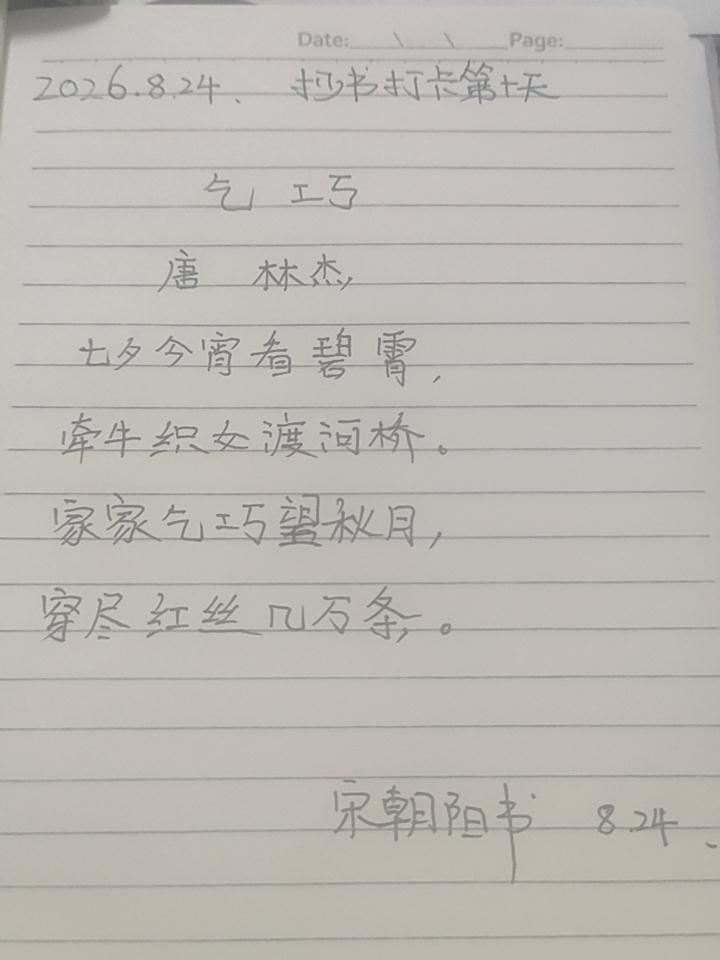 Date:___\___\___Page:______
2026.8.24. 抄书打卡第十天
乞 巧
唐 林杰
七夕今宵看碧霄,
牵牛织女渡河桥。
家家乞巧望秋月,
穿尽红丝几万条。
宋朝阳书 8.24.